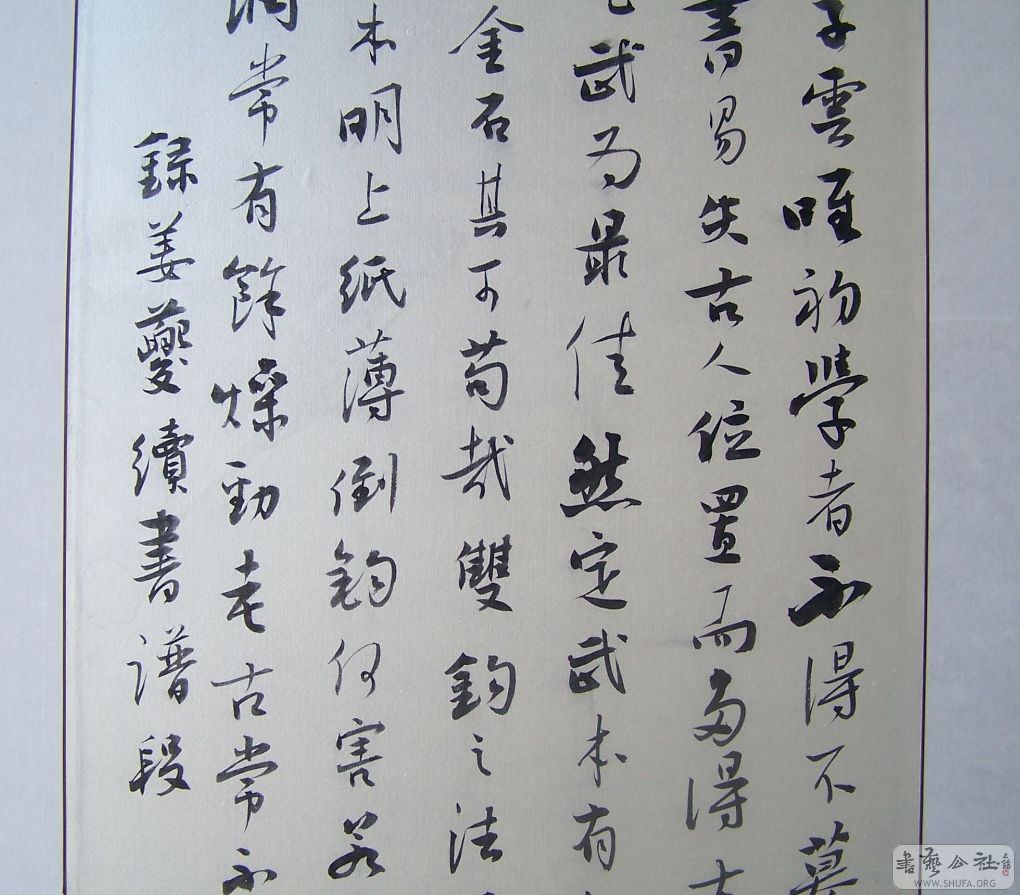 子雲唯初學者不得不摹
書易失古人位置而多得古
武為最佳然定武本有
金石其可苟哉雙鉤之法
本明上紙薄倒鉤何害若
潤常有餘燥勁老古常不
錄姜夔續書譜段
書藝公社
WWW.SHUFA.ORG